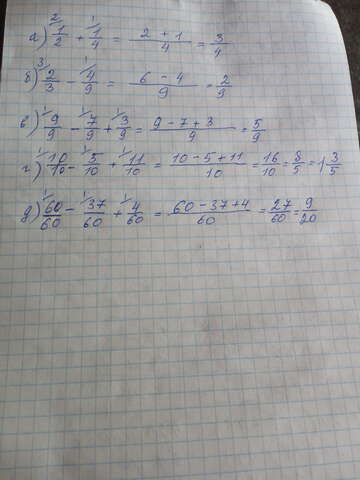 а) ²/1/2 + ¹/1/4 = 2 + 1/4 = 3/4
б) ³/2/3 - ¹/4/9 = 6 - 4/9 = 2/9
в) ¹/9/9 - ¹/7/9 + ¹/3/9 = 9 - 7 + 3/9 = 5/9
г) ¹/10/10 - ¹/5/10 + ¹/11/10 = 10 - 5 + 11/10 = 16/10 = 8/5 = 1 3/5
д) ¹/60/60 - ¹/37/60 + ¹/4/60 = 60 - 37 + 4/60 = 27/60 = 9/20